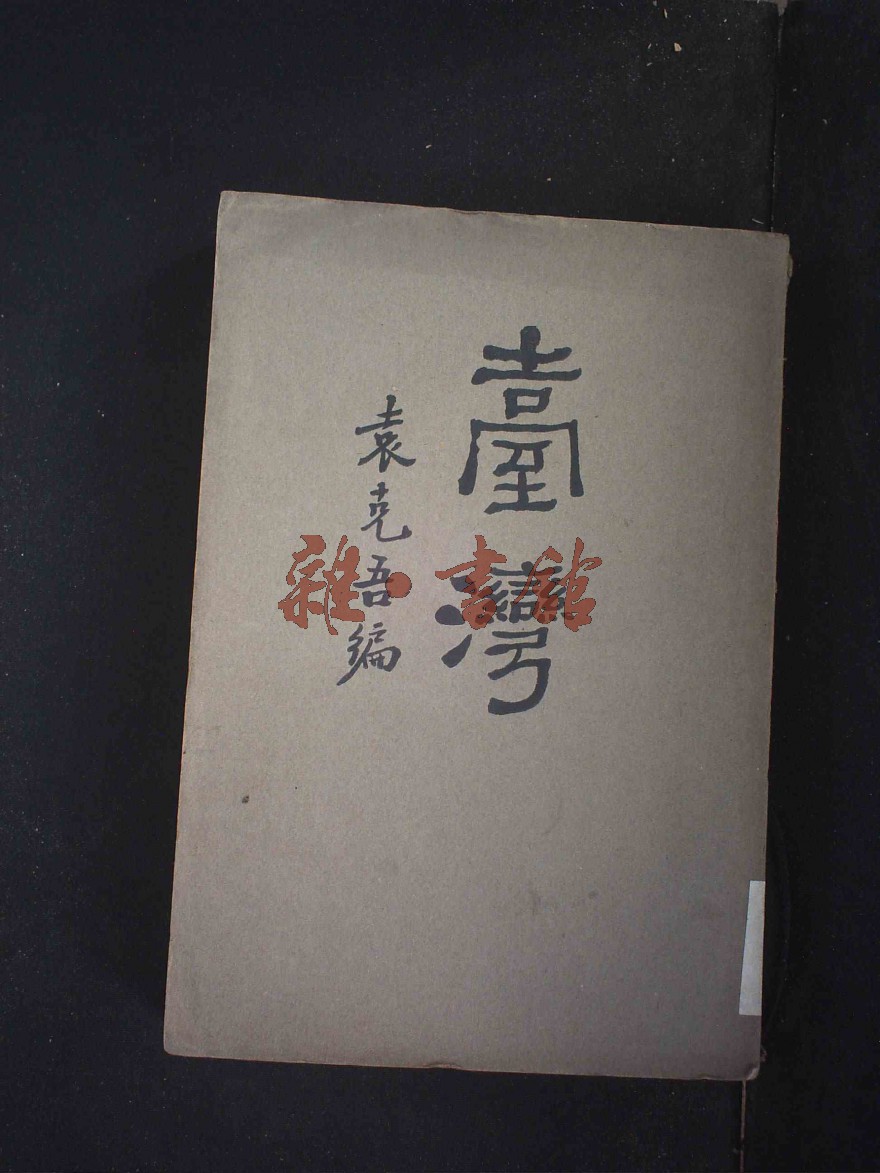 臺灣
袁克吾編
雜·書館